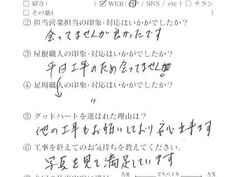 紹介( ) ☑WEB( /SNS/etc) □チラシ
□その他(
②担当営業担当の印象・対応はいかがでしたか?
会ってませんが良かったです
③屋根職人の印象・対応はいかがでしたか?
平日工事のため会ってません
④足場職人の印象・対応はいかがでしたか?
〃
⑤グッドハートを選ばれた理由は?
他の工事もお願いしており安心出来ます
⑥工事を終えてのお気持ちを教えてください。
写真を見て満足しています